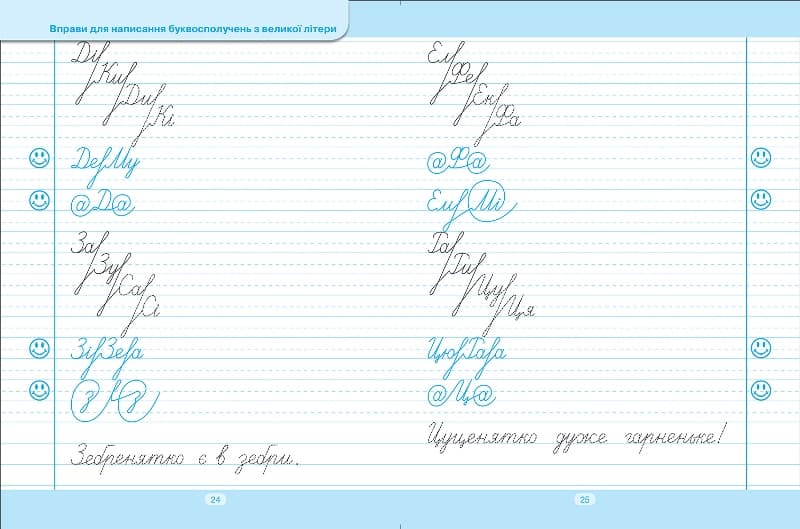 Вправи для написання буквосполучень з великої літери
Ді
Ки
Ди
Кі
ДеМу
@Д@
За
Зу
Са
Сі
ЗіЗеа
З З
Зебренятко є в зебри.
24
Ел
Фе
Ен
Фа
@Ф@
Ем Мі
Га
Ги
Цу
Ця
ЦюГаа
@Ц@
Цуценятко дуже гарненьке!
25